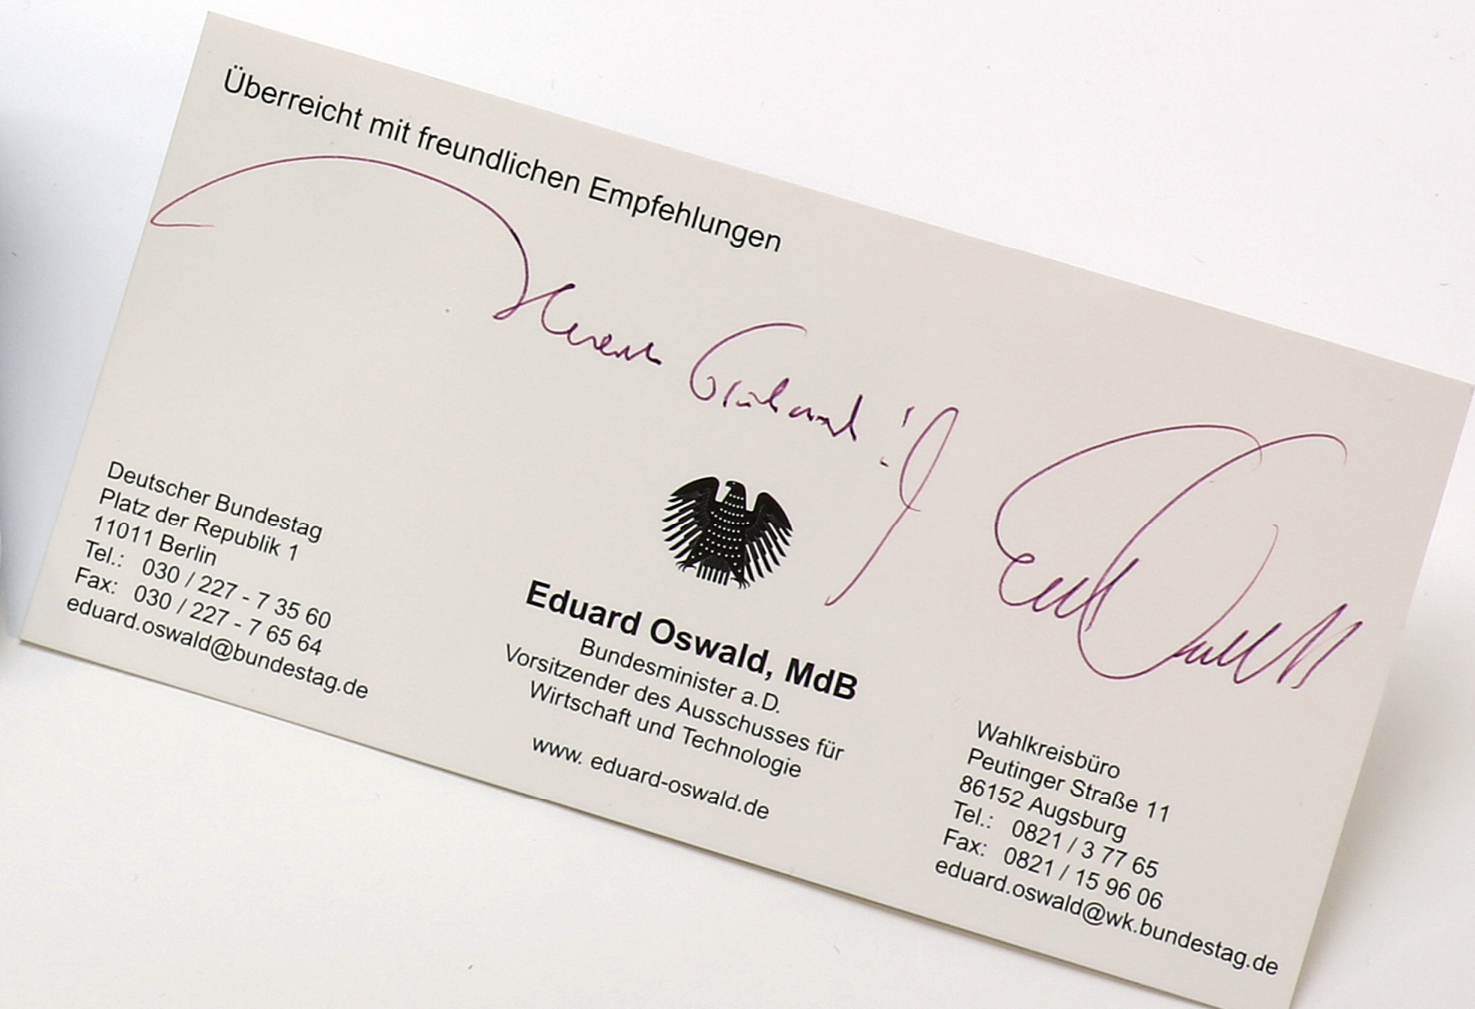 Überreicht mit freundlichen Empfehlungen
Deutscher Bundestag
Platz der Republik 1
11011 Berlin
Tel.: 030 / 227 - 7 35 60
Fax: 030 / 227 - 7 65 64
eduard.oswald@bundestag.de
Eduard Oswald, MdB
Bundesminister a.D.
Vorsitzender des Ausschusses für
Wirtschaft und Technologie
www. eduard-oswald.de
Wahlkreisbüro
Peutinger Straße 11
86152 Augsburg
Tel.: 0821 / 3 77 65
Fax: 0821 / 15 96 06
eduard.oswald@wk.bundestag.de